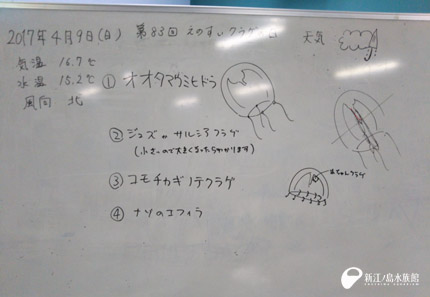 2017年4月9日(日) 第83回 えのすいクラゲ
天気
気温 16.7℃
水温 15.2℃
風向 北
① オオタマウミヒドラ
② ジュズノサルシアクラゲ
(小さいので大きくなったらわかります)
③ コモチカギノテクラゲ
④ ナゾのエフィラ
赤ちゃんクラゲ
新江ノ島水族館
ENOSHIMA AQUARIUM